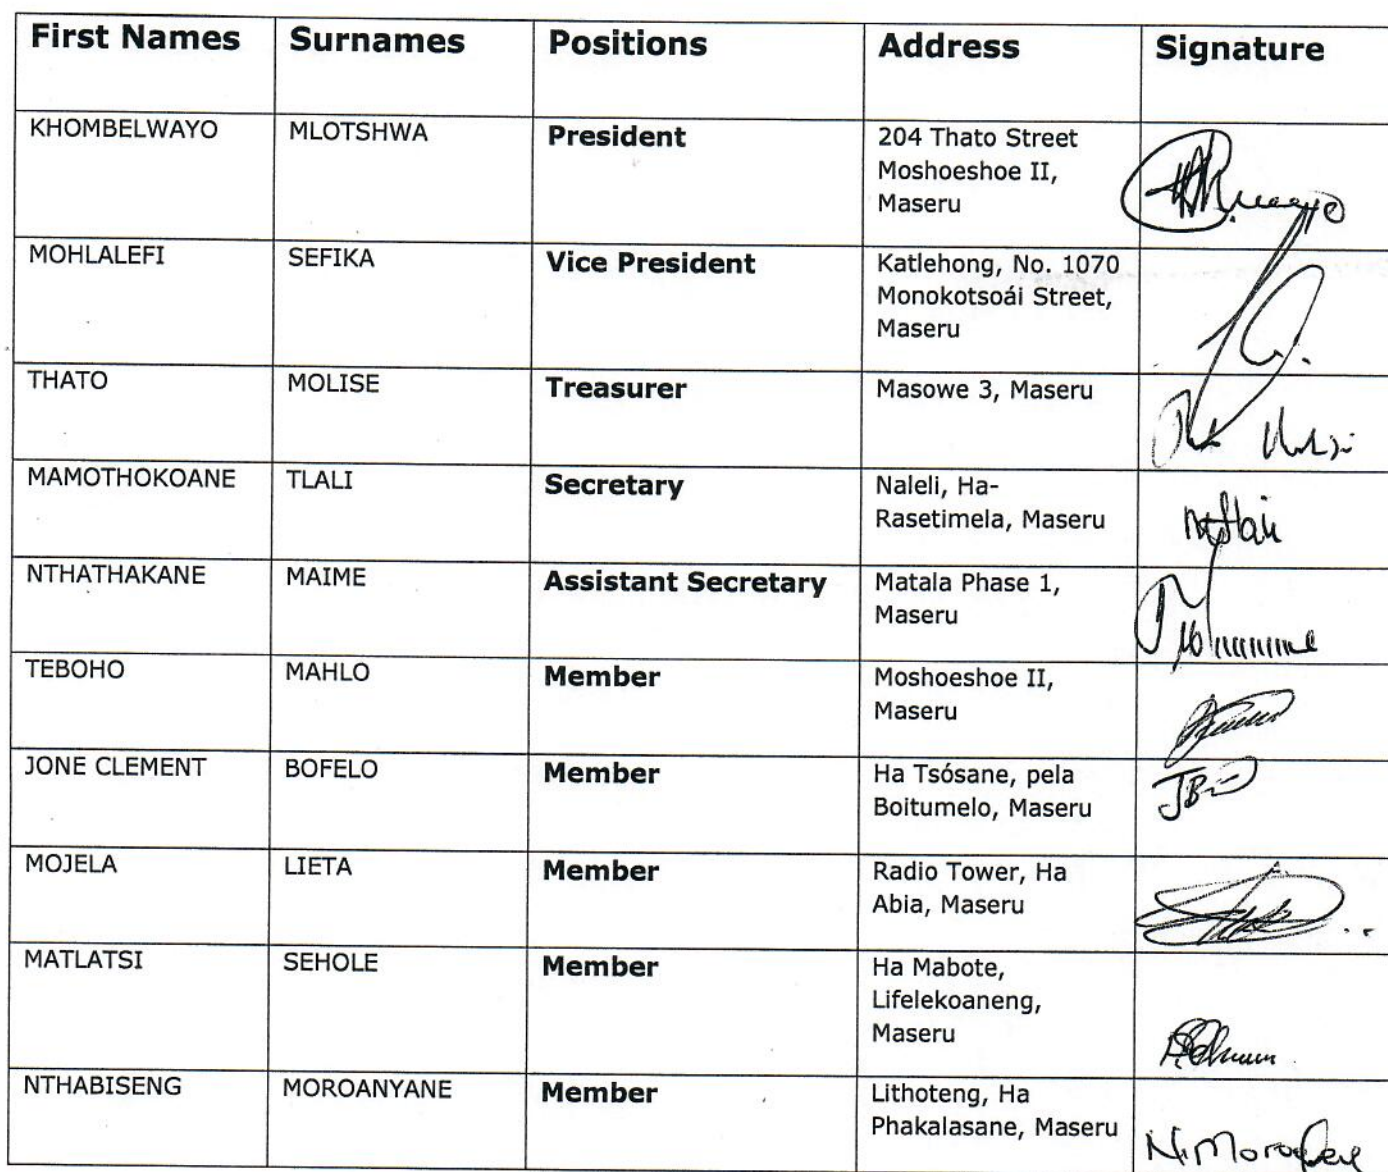 First Names Surnames Positions Address Signature
KHOMBELWAYO MLOTSHWA President 204 Thato Street
Moshoeshoe II,
Maseru
MOHLALEFI SEFIKA Vice President Katlehong, No. 1070
Monokotsoái Street,
Maseru
THATO MOLISE Treasurer Masowe 3, Maseru
MAMOTHOKOANE TLALI Secretary Naleli, Ha-
Rasetimela, Maseru
NTHATHAKANE MAIME Assistant Secretary Matala Phase 1,
Maseru
TEBOHO MAHLO Member Moshoeshoe II,
Maseru
JONE CLEMENT BOFELO Member Ha Tsósane, pela
Boitumelo, Maseru
MOJELA LIETA Member Radio Tower, Ha
Abia, Maseru
MATLATSI SEHOLE Member Ha Mabote,
Lifelekoaneng,
Maseru
NTHABISENG MOROANYANE Member Lithoteng, Ha
Phakalasane, Maseru